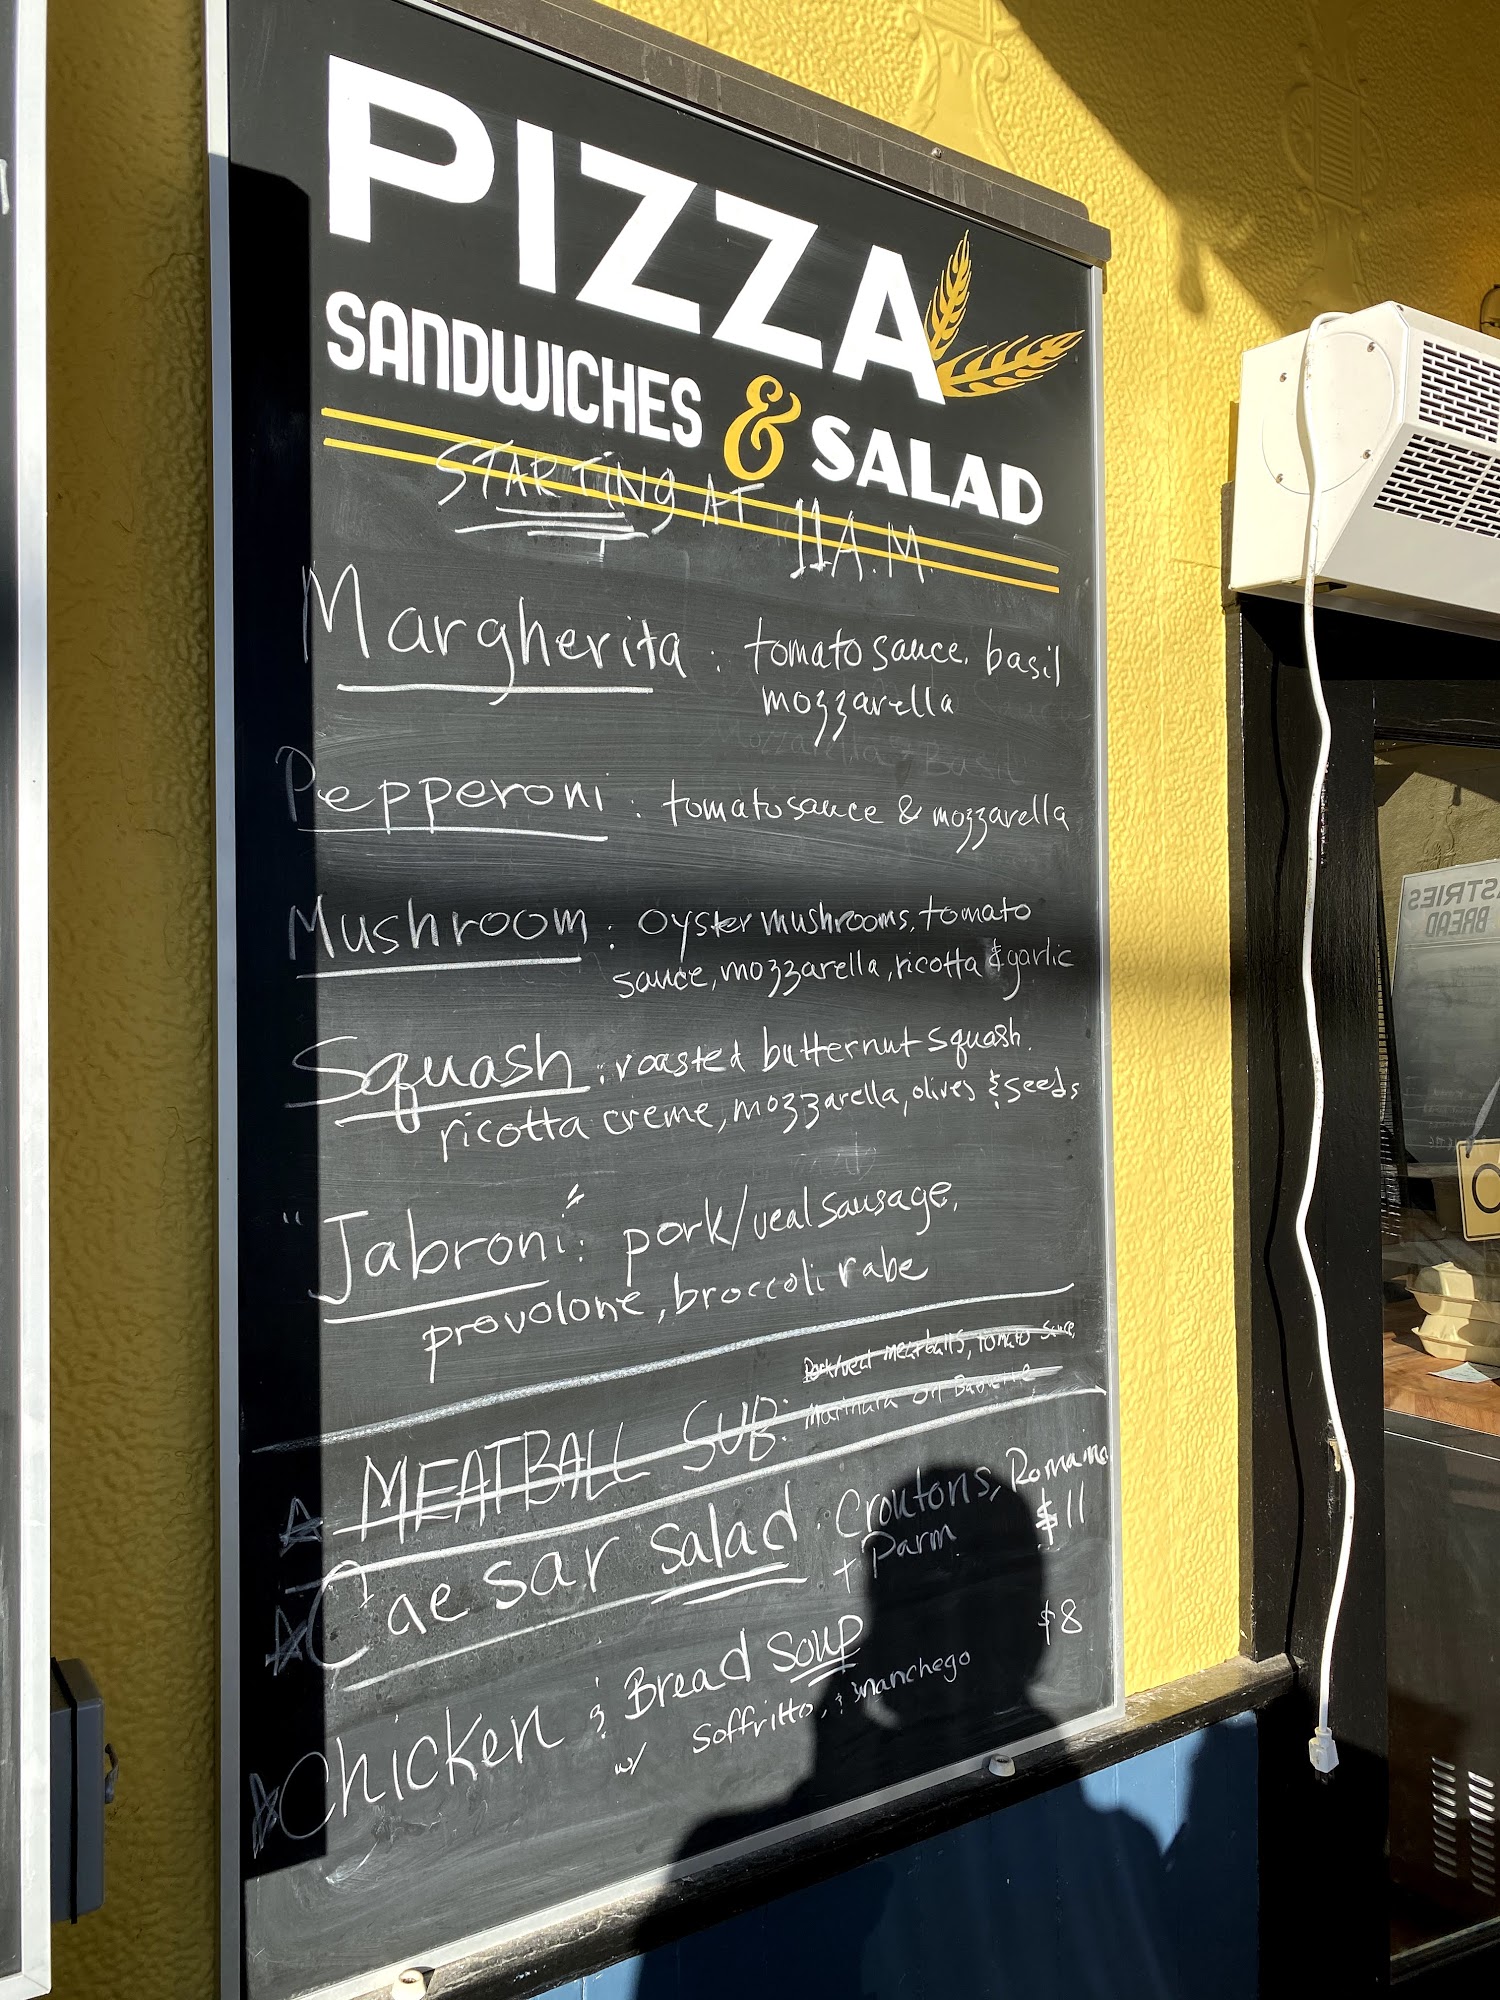 PIZZA
SANDWICHES & SALAD
STARTING AT 11A.M.
Margherita : tomato sauce, basil
mozzarella
Mozzarella + Basil
Pepperoni : tomato sauce & mozzarella
Mushroom : oyster mushrooms, tomato
sauce, mozzarella, ricotta & garlic
Squash : roasted butternut squash,
ricotta creme, mozzarella, olives & seeds
"Jabroni": pork/veal sausage,
provolone, broccoli rabe
MEATBALL SUB: Pork/veal meatballs, tomato sauce,
Marinara on Baguette
Caesar Salad : Croutons, Romaine
+ Parm $11
Chicken & Bread Soup $8
w/ Soffritto, & manchego
STRIES
BREAD